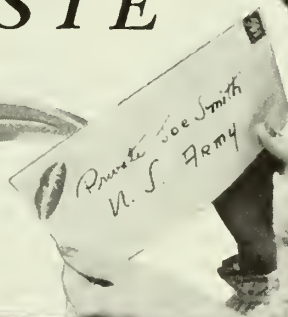 STE
Private Joe Smith
U. S. Army